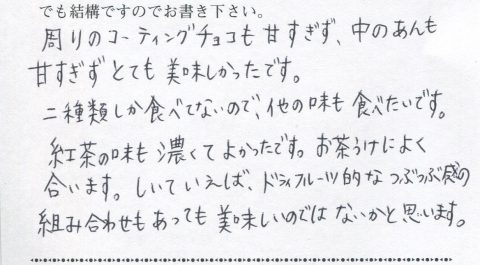 でも結構ですのでお書き下さい。
周りのコーティングチョコも甘すぎず、中のあんも
甘すぎずとても美味しかったです。
二種類しか食べてないので、他の味も食べたいです。
紅茶の味も濃くてよかったです。お茶うけによく
合います。しいていえば、ドライフルーツ的なつぶつぶ感の
組み合わせもあっても美味しいのではないかと思います。